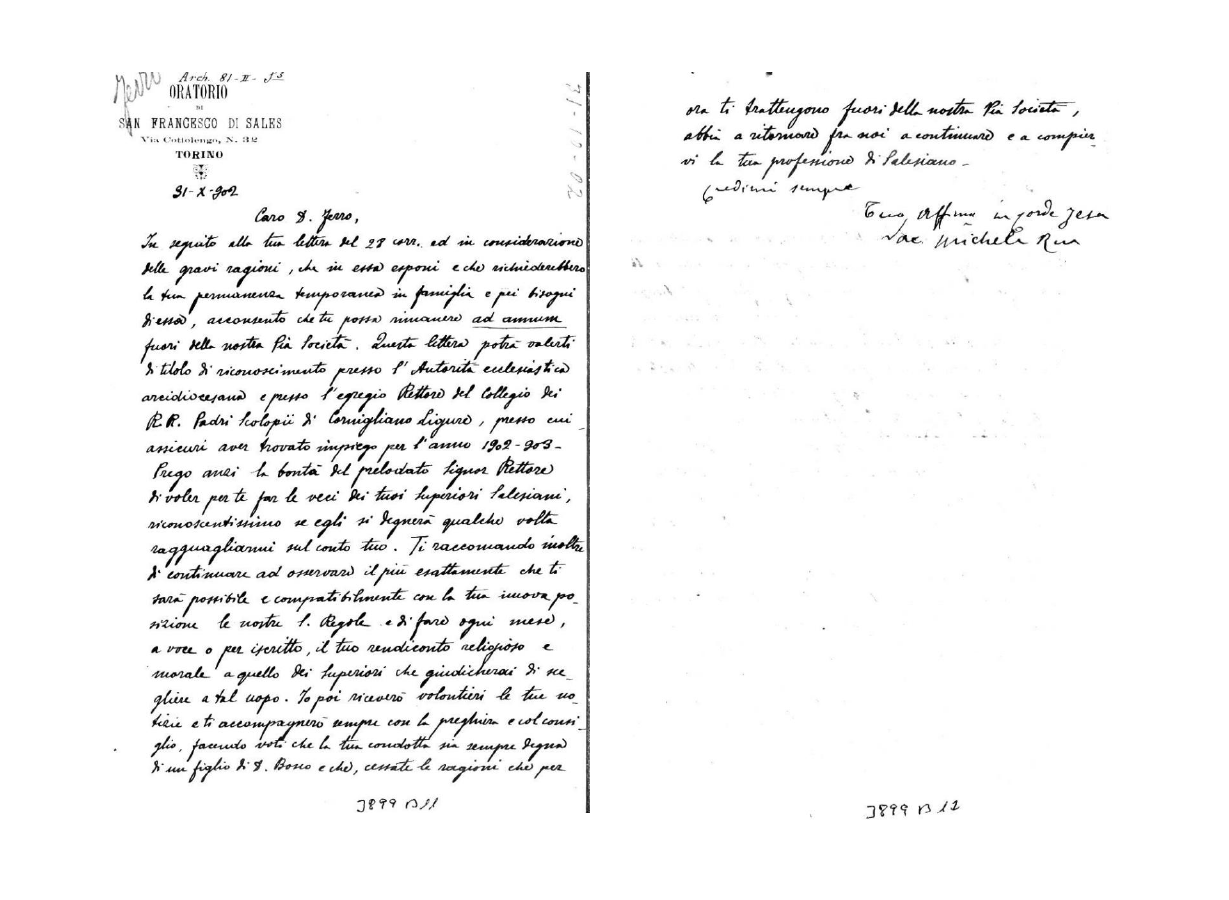 Arch. 81-II-
ORATORIO
DI
SAN FRANCESCO DI SALES
Via Cottolengo, N. 32
TORINO
31-X-902
31-10-02
Caro D. Ferro,
In seguito alla tua lettera del 28 corr. ed in considerazione
delle gravi ragioni, che in essa esponi e che richiederebbero
la tua permanenza temporanea in famiglia e pei bisogni
di essa, acconsento che tu possa rimanere ad annum
fuori della nostra Pia Società. Questa lettera potrà valerti
di titolo di riconoscimento presso l'Autorità ecclesiastica
arcidiocesana e presso l'egregio Rettore del Collegio dei
R.R. Padri Scolopii di Cornigliano Ligure, presso cui
assicuri aver trovato impiego per l'anno 1902-903-
Prego anzi la bontà del prelodato Signor Rettore
di voler per te far le veci dei tuoi Superiori Salesiani,
riconoscentissimo se egli si degnerà qualche volta
ragguagliarmi sul conto tuo. Ti raccomando inoltre
di continuare ad osservare il più esattamente che ti
sarà possibile e compatibilmente con la tua nuova po_
sizione le nostre S. Regole e di fare ogni mese,
a voce o per iscritto, il tuo rendiconto religioso e
morale a quello dei Superiori che giudicherai di sce_
gliere a tal uopo. Io poi riceverò volontieri le tue no_
tizie e ti accompagnerò sempre con la preghiera e col consi_
glio, facendo voti che la tua condotta sia sempre degna
di un figlio di D. Bosco e che, cessate le ragioni che per
3899 B 11
ora ti trattengono fuori della nostra Pia Società,
abbia a ritornare fra noi a continuare e a compier_
vi la tua professione di Salesiano_
Credimi sempre
Tuo Affmo in Corde Jesu
Sac. Michele Rua
3899 B 12